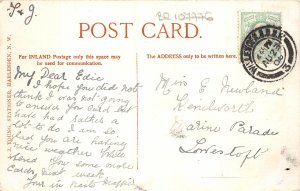 T & J.
POST CARD.
For INLAND Postage only this space may
be used for communication.
The ADDRESS only to be written here.
My Dear Edie
I hope you did not
think I was not going
to answer you Card but
have had rather a
lot to do. I am so
glad you are having
nice weather
send you some more
Cards next week
Your in haste
Miss E Newland
Kenilworth
Marine Parade
Lowestoft
YOUNG, STATIONER, HARLESDEN, N.W.